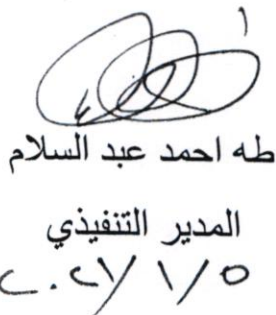 طه احمد عبد السلام
المدير التنفيذي
٢٠٢٧/١/٥